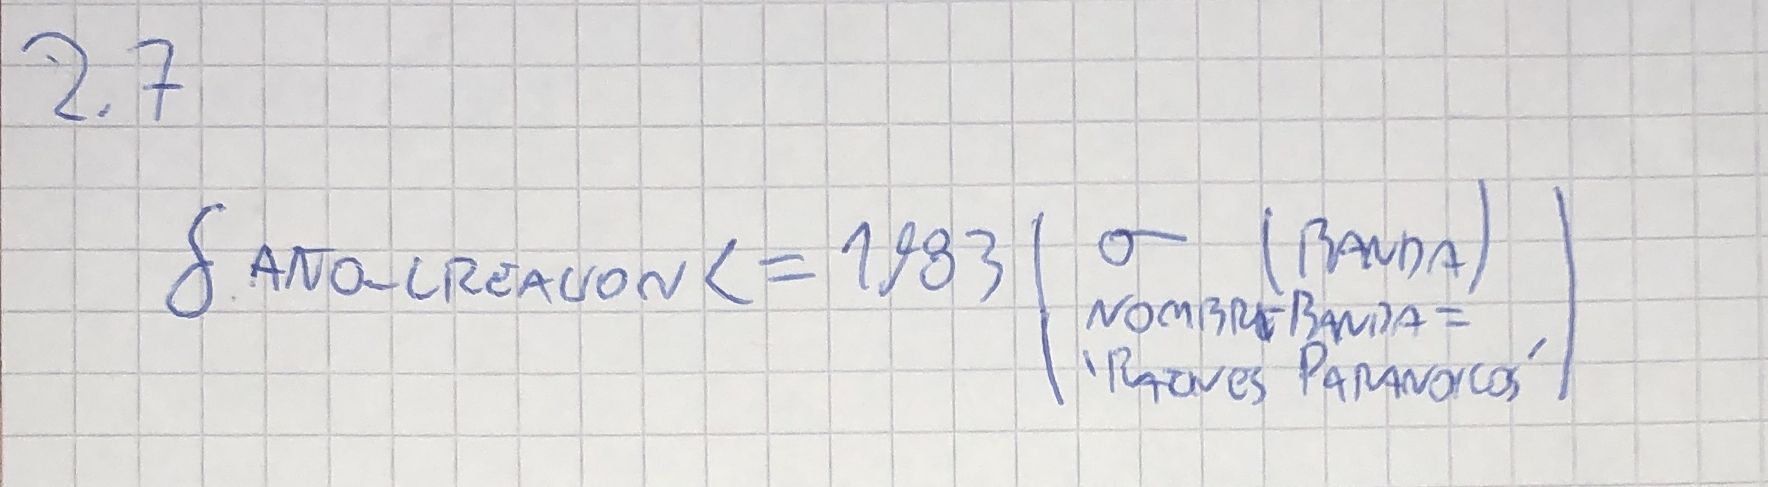 2.7
δ AÑO-CREACION <= 1983 ( σ (BANDA)
NOMBRE-BANDA =
'RATONES PARANOICOS' )